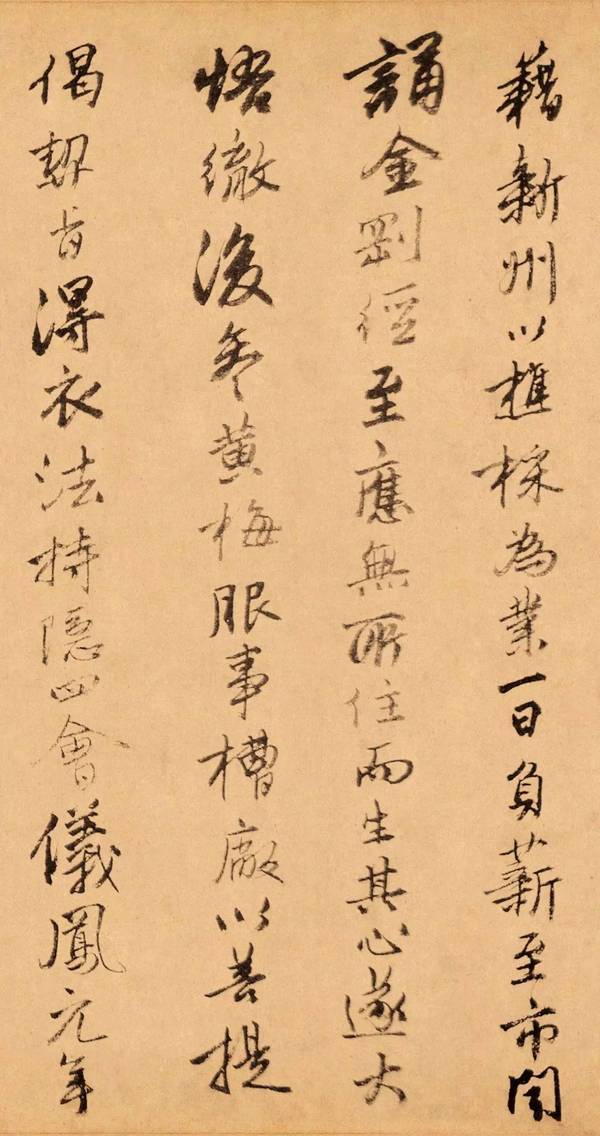 籍新州以樵採為業一日負薪至市聞
誦金剛經至應無所住而生其心遂大
悟徹後參黃梅服事槽廠以菩提
偈契旨得衣法持隱四會儀鳳元年